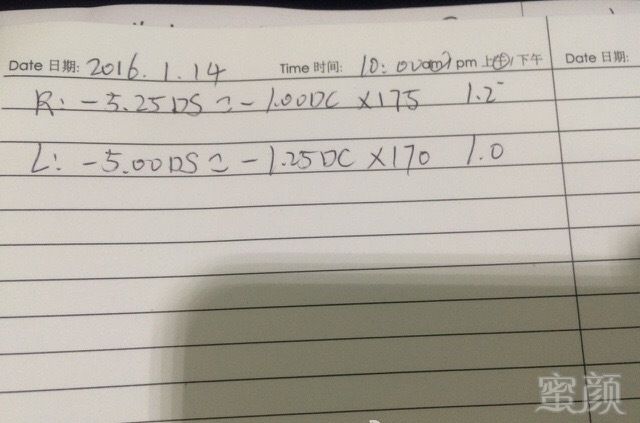 Date 日期: 2016.1.14 Time 时间: 10:00am pm 上午/下午 Date 日期:
R: -5.25DS ⌒ -1.00DC ×175 1.2
L: -5.00DS ⌒ -1.25DC ×170 1.0
蜜颜